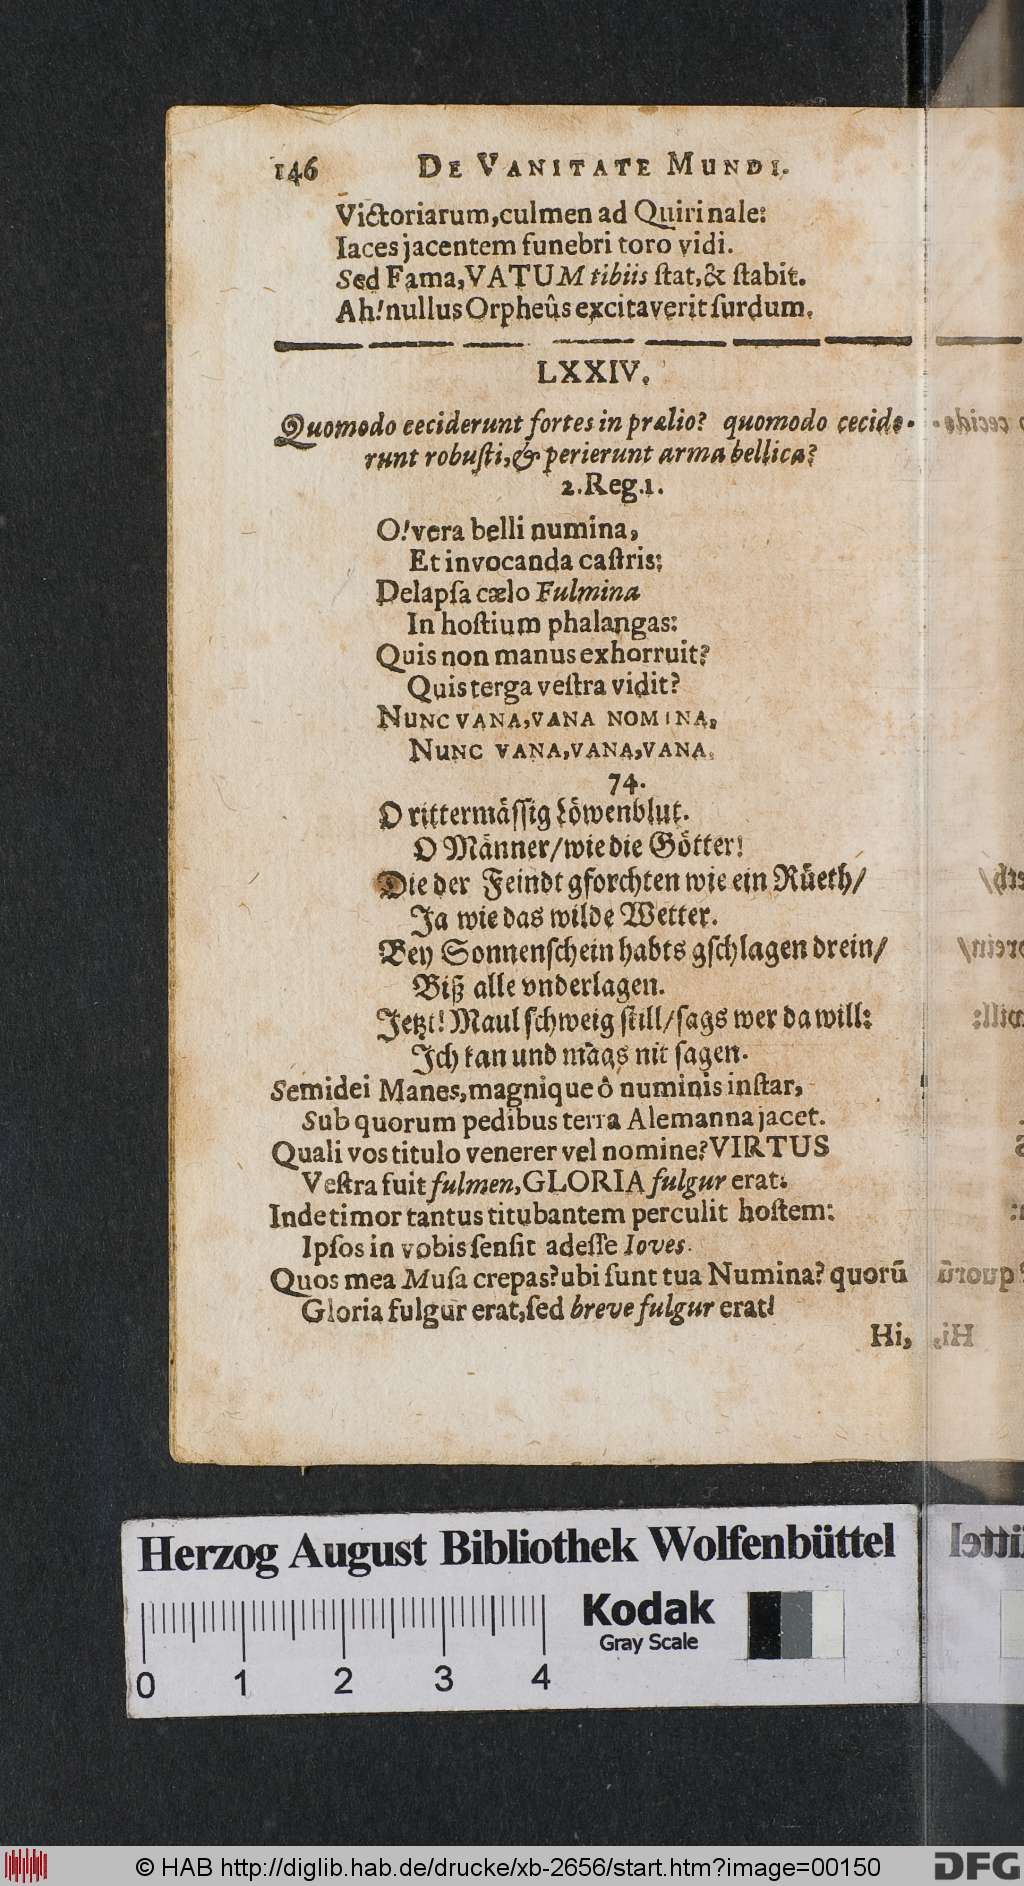 146 DE VANITATE MUNDI.
Victoriarum,culmen ad Quirinale:
Iaces jacentem funebri toro vidi.
Sed Fama,VATUM tibiis ſtat,& ſtabit.
Ah!nullus Orpheûs excitaverit ſurdum.
LXXIV.
Quomodo ceciderunt fortes in prælio? quomodo cecide-
runt robuſti,& perierunt arma bellica?
2.Reg.1.
O!vera belli numina,
Et invocanda caſtris;
Delapſa cælo Fulmina
In hoſtium phalangas:
Quis non manus exhorruit?
Quis terga veſtra vidit?
NUNC VANA,VANA NOMINA,
NUNC VANA,VANA,VANA.
74.
O rittermäſſig Löwenblut.
O Männer/wie die Götter!
Die der Feindt gforchten wie ein Rüeth/
Ja wie das wilde Wetter.
Bey Sonnenſchein habts gſchlagen drein/
Biß alle vnderlagen.
Jetzt! Maul ſchweig ſtill/ſags wer da will:
Ich kan und mags nit ſagen.
Semidei Manes,magnique ô numinis inſtar,
Sub quorum pedibus terra Alemanna jacet.
Quali vos titulo venerer vel nomine?VIRTUS
Veſtra fuit fulmen,GLORIA fulgur erat:
Inde timor tantus titubantem perculit hoſtem:
Ipſos in vobis ſenſit adeſſe Ioves.
Quos mea Muſa crepas?ubi ſunt tua Numina? quorū
Gloria fulgur erat,ſed breve fulgur erat!
Hi,
Herzog August Bibliothek Wolfenbüttel
Kodak
Gray Scale
0 1 2 3 4
© HAB http://diglib.hab.de/drucke/xb-2656/start.htm?image=00150
DFG